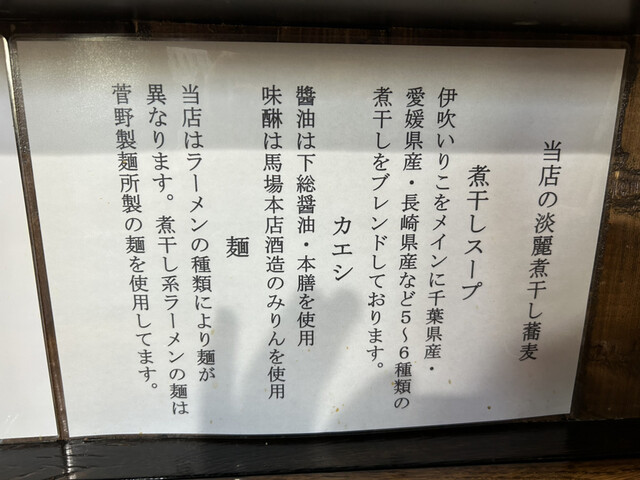 当店の淡麗煮干し蕎麦
煮干しスープ
伊吹いりこをメインに千葉県産・
愛媛県産・長崎県産など5〜6種類の
煮干しをブレンドしております。
カエシ
醤油は下総醤油・本膳を使用
味醂は馬場本店酒造のみりんを使用
麺
当店はラーメンの種類により麺が
異なります。煮干し系ラーメンの麺は
菅野製麺所製の麺を使用してます。